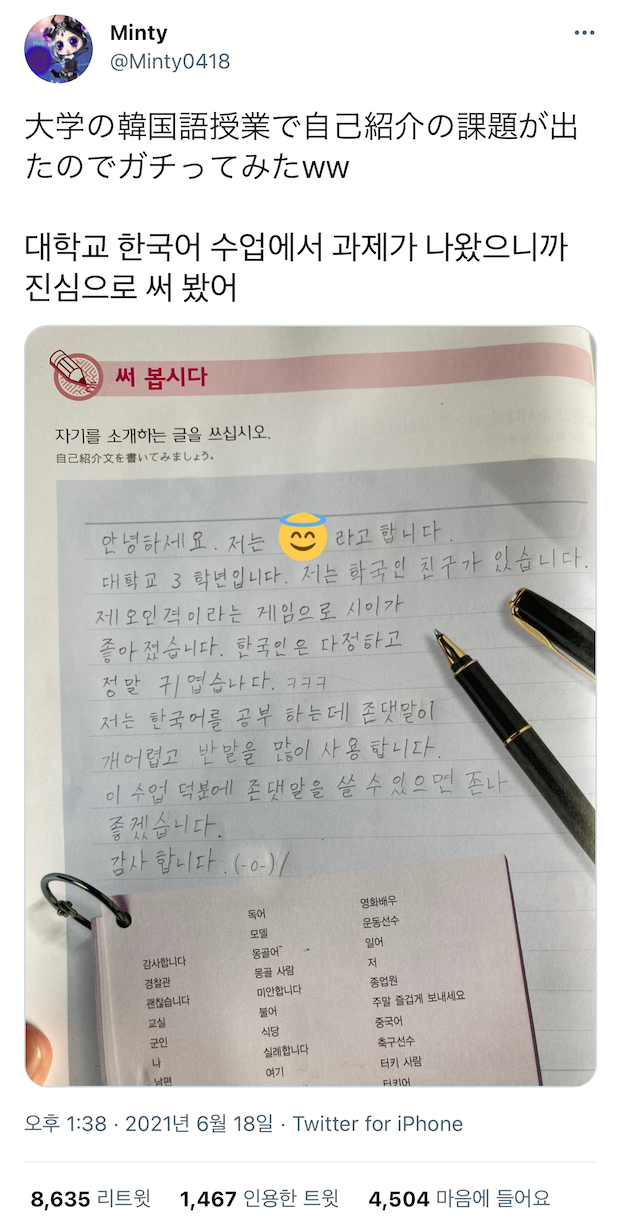 Minty
@Minty0418
大学の韓国語授業で自己紹介の課題が出
たのでガチってみたww
대학교 한국어 수업에서 과제가 나왔으니까
진심으로 써 봤어
써 봅시다
자기를 소개하는 글을 쓰십시오.
自己紹介文を書いてみましょう。
안녕하세요. 저는 😇 라고 합니다.
대학교 3 학년입니다. 저는 한국인 친구가 있습니다.
제오인격이라는 게임으로 사이가
좋아졌습니다. 한국인은 다정하고
정말 귀엽습니다. ㅋㅋㅋ
저는 한국어를 공부 하는데 존댓말이
개어렵고 반말을 많이 사용합니다.
이 수업 덕분에 존댓말을 쓸 수 있으면 존나
좋겠습니다.
감사합니다. (-o-)/
감사합니다
경찰관
괜찮습니다
교실
군인
나
남편
독어
모델
몽골어
몽골 사람
미안합니다
불어
식당
실례합니다
여기
영화배우
운동선수
일어
저
종업원
주말 즐겁게 보내세요
중국어
축구선수
터키 사람
터키어
오후 1:38 · 2021년 6월 18일 · Twitter for iPhone
8,635 리트윗 1,467 인용한 트윗 4,504 마음에 들어요